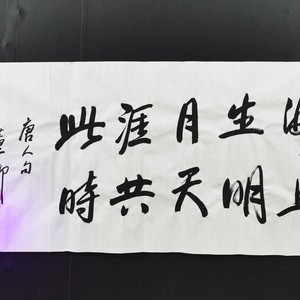 海上
生明
月天
涯共
此時
唐人句